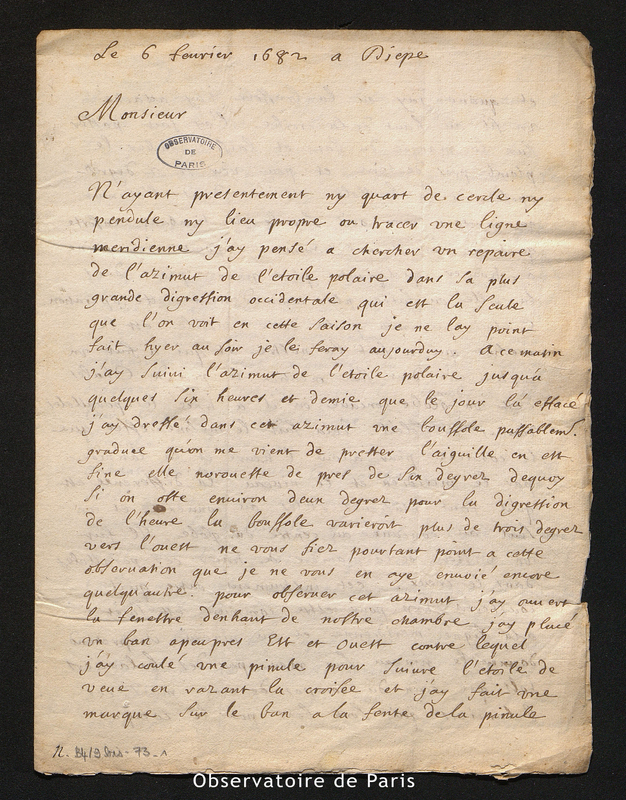 Le 6 fevrier 1682 a Diepe
Monsieur
OBSERVATOIRE
DE
PARIS
N'ayant presentement ny quart de cercle ny
pendule ny lieu propre ou tracer vne ligne
meridienne j'ay pensé a chercher vn repaire
de l'azimut de l'etoile polaire dans sa plus
grande digression occidentale qui est la seule
que l'on voit en cette saison je ne lay point
fait hyer au soir je le feray aujourduy. A ce matin
j'ay suivi l'azimut de l'etoile polaire jusqu'a
quelques six heures et demie que le jour la effacé
j'ay dressé dans cet azimut vne boussole passablemt.
graduee qu'on me vient de prester l'aiguille en est
fine elle norouette de pres de six degrez dequoy
si on oste environ deux degrez pour la digression
de l'heure la boussole varieroit plus de trois degrez
vers l'ouest ne vous fiez pourtant point a cette
observation que je ne vous en aye envoié encore
quelqu'autre. pour observer cet azimut j'ay ouvert
la fenestre denhaut de nostre chambre j'ay placé
vn ban apeupres Est et Ouest contre lequel
j'ay coulé vne pinule pour suivre l'etoile de
veue en razant la croisée et j'ay fait vne
marque sur le ban a la fente de la pinule
Observatoire de Paris